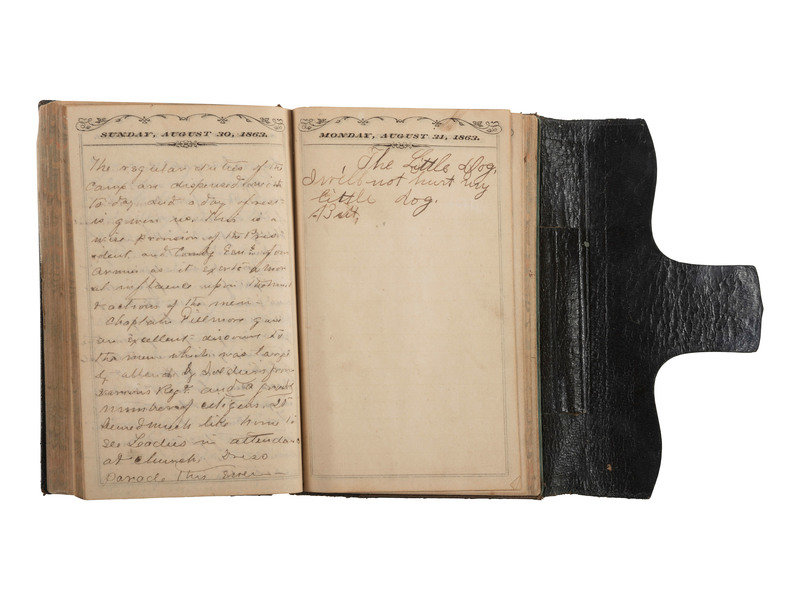 SUNDAY, AUGUST 30, 1863.
The regular duties of the
Camp are dispensed with
to day and a day of rest
is given us. This is a
wise provision of the Pres
ident and Comdg Genl of our
Armies as it exerts a mor
al influence upon the
& actions of the men
Chaplain Fillmore gave
an Excellent discourse to
the men which was large
ly attended by Soldiers from
Regt and a great
number of citizens. It
seemed much like home to
see Ladies in attendance
at church. Dress
Parade this Eve
MONDAY, AUGUST 31, 1863.
The Little dog.
I will not hurt my
little dog.